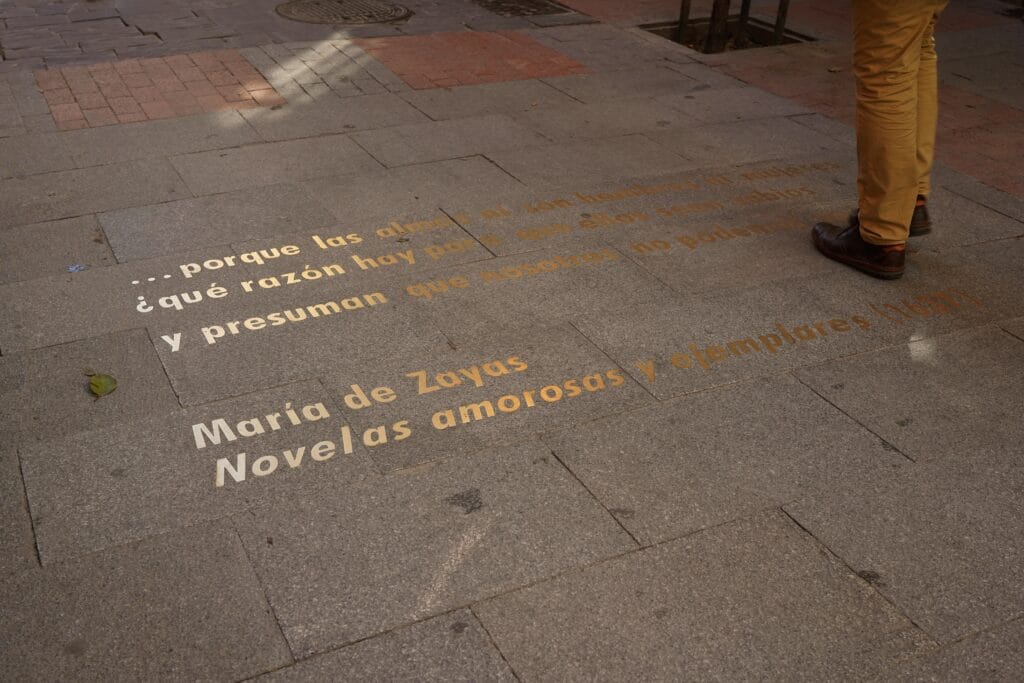 ...porque las almas ni son hombres ni mujeres
¿qué razón hay para que ellos sean sabios
y presuman que nosotras no podemos
María de Zayas
Novelas amorosas y ejemplares (1637)